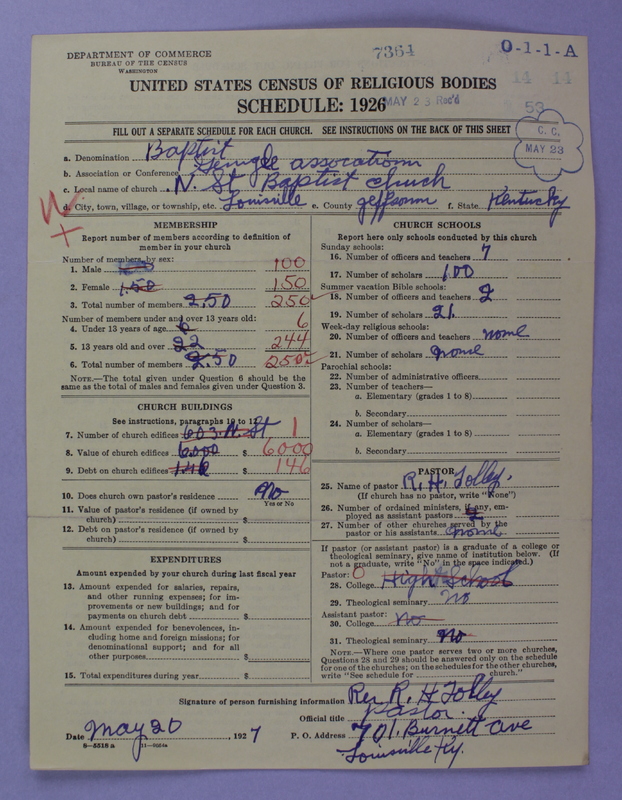 DEPARTMENT OF COMMERCE
BUREAU OF THE CENSUS
WASHINGTON
7364
O-1-1-A
14 14
53
UNITED STATES CENSUS OF RELIGIOUS BODIES
SCHEDULE: 1926
MAY 23 Rec'd
C. C.
MAY 23
FILL OUT A SEPARATE SCHEDULE FOR EACH CHURCH. SEE INSTRUCTIONS ON THE BACK OF THIS SHEET
a. Denomination Baptist
b. Association or Conference assocationn
c. Local name of church N. St Baptist church
d. City, town, village, or township, etc. Louisville e. County Jefferson f. State Kentucky
MEMBERSHIP
Report number of members according to definition of
member in your church
Number of members, by sex:
1. Male 100
2. Female 1.50 150
3. Total number of members 2,50 250
Number of members under and over 13 years old:
4. Under 13 years of age 6 6
5. 13 years old and over 22 244
6. Total number of members 2.50 250
NOTE.—The total given under Question 6 should be the
same as the total of males and females given under Question 3.
CHURCH BUILDINGS
See instructions, paragraphs 10 to 12
7. Number of church edifices 603 N. St 1
8. Value of church edifices 6.000 $ 6000
9. Debt on church edifices 146 $ 146
10. Does church own pastor's residence No
Yes or No
11. Value of pastor's residence (if owned by
church) $
12. Debt on pastor's residence (if owned by
church) $
EXPENDITURES
Amount expended by your church during last fiscal year
13. Amount expended for salaries, repairs,
and other running expenses; for im-
provements or new buildings; and for
payments on church debt $
14. Amount expended for benevolences, in-
cluding home and foreign missions; for
denominational support; and for all
other purposes $
15. Total expenditures during year $
CHURCH SCHOOLS
Report here only schools conducted by this church
Sunday schools:
16. Number of officers and teachers 7
17. Number of scholars 100
Summer vacation Bible schools:
18. Number of officers and teachers 2
19. Number of scholars 21
Week-day religious schools:
20. Number of officers and teachers none
21. Number of scholars none
Parochial schools:
22. Number of administrative officers
23. Number of teachers—
a. Elementary (grades 1 to 8)
b. Secondary
24. Number of scholars—
a. Elementary (grades 1 to 8)
b. Secondary
PASTOR
25. Name of pastor R. H. Tolley.
(If church has no pastor, write "None")
26. Number of ordained ministers, if any, em-
ployed as assistant pastors
27. Number of other churches served by the
pastor or his assistants none
If pastor (or assistant pastor) is a graduate of a college or
theological seminary, give name of institution below. (If
not a graduate, write "No" in the space indicated.)
Pastor: O
28. College High School
29. Theological seminary no
Assistant pastor:
30. College no
31. Theological seminary No
NOTE.—Where one pastor serves two or more churches,
Questions 28 and 29 should be answered only on the schedule
for one of the churches; on the schedules for the other churches,
write "See schedule for church."
Signature of person furnishing information Rev R. H Tolley
Official title Pastor.
Date May 20, 1927 P. O. Address 701. Burnett Ave
Louisville Ky.
8—5518 a